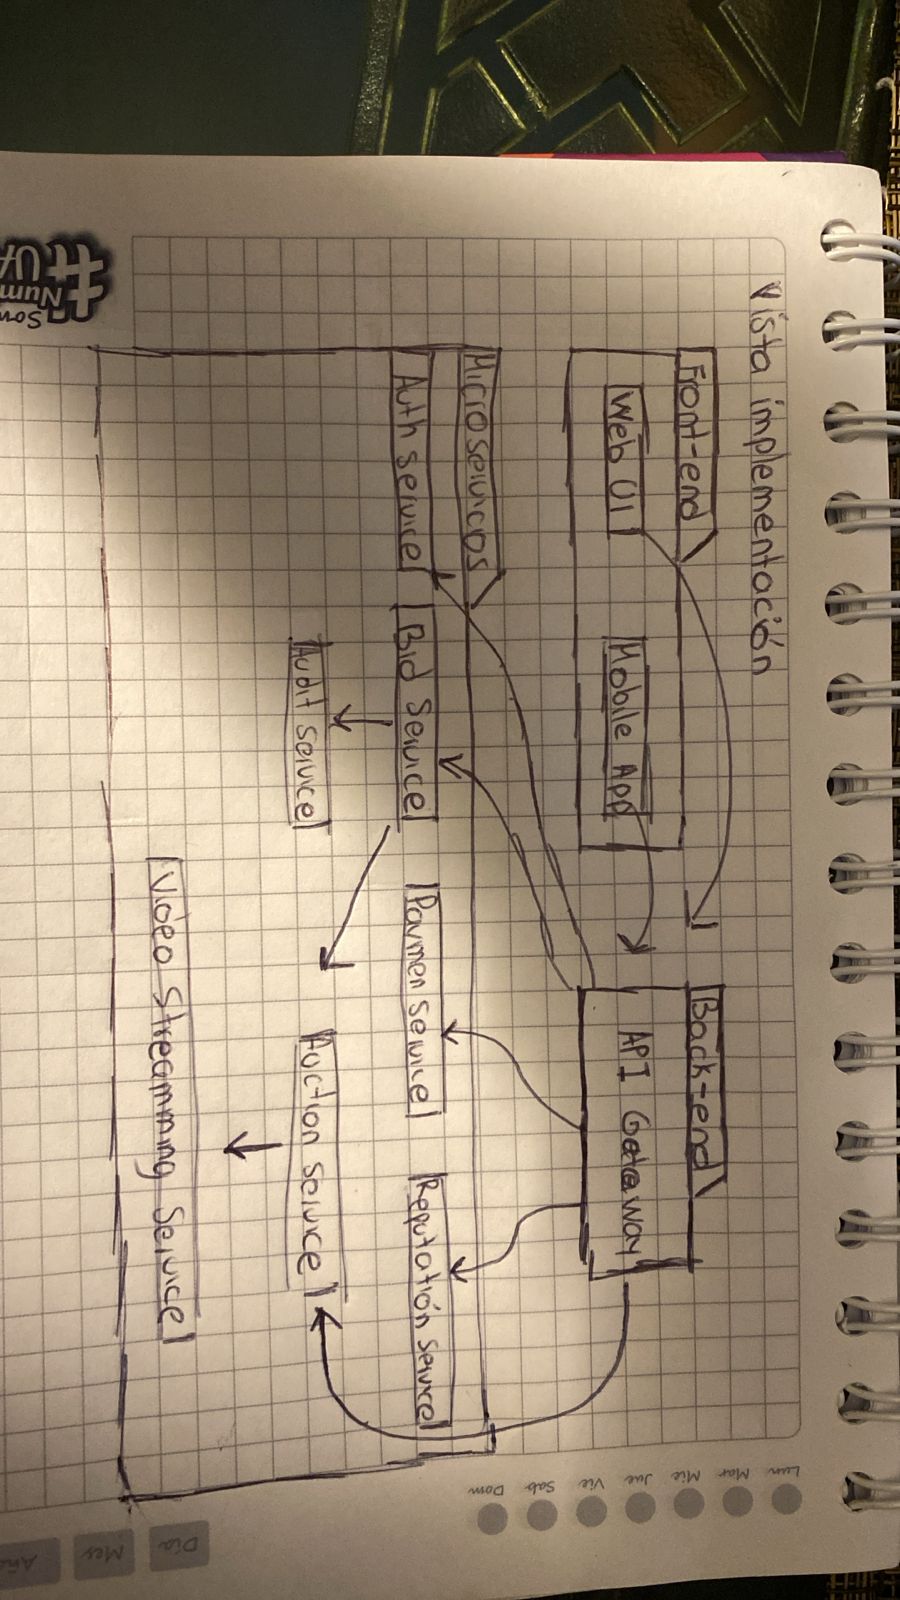 Vista implementación
Front-end
Web UI
Mobile App
Back-end
API Gateway
Microservicios
Auth service
Bid Service
Paymen service
Reputatión service
Audit service
Auction service
Video Streamming Service
Lun
Mar
Mie
Jue
Vie
Sab
Dom
Día
Mes
Año
#